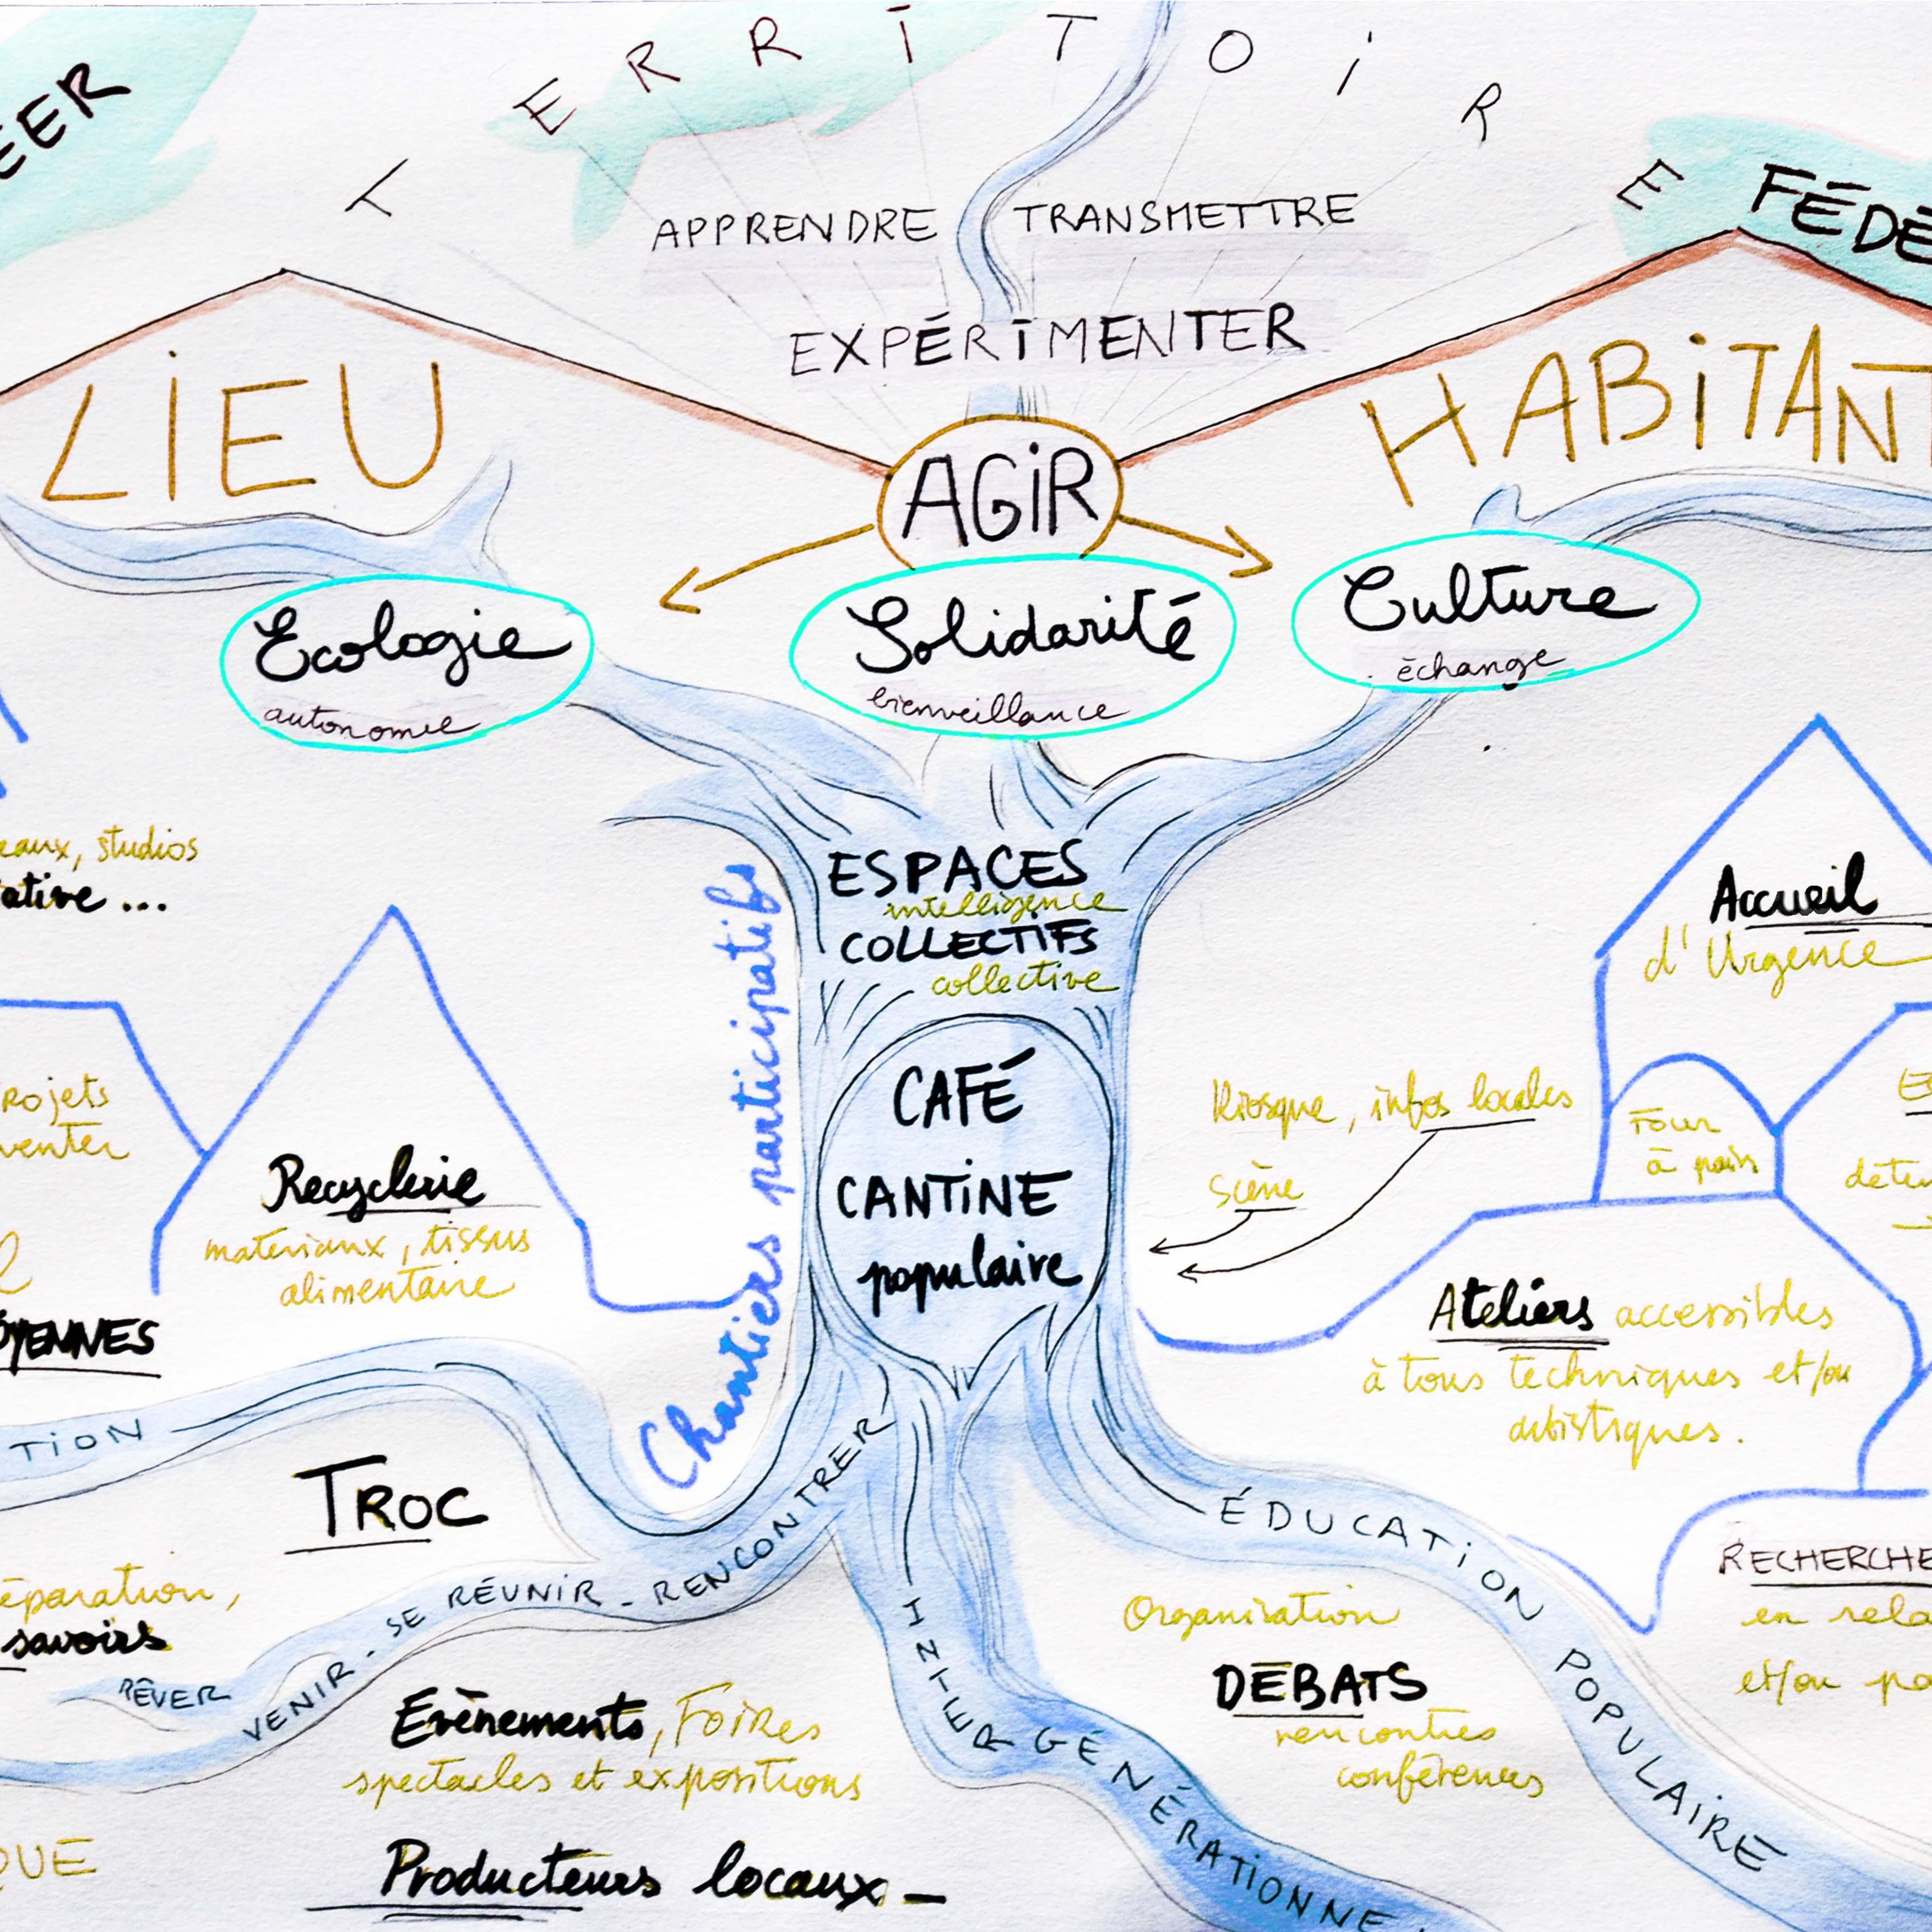 TERRITOIRE
FÉDÉ
APPRENDRE TRANSMETTRE
EXPÉRIMENTER
LIEU
HABITANT
AGIR
Ecologie
autonomie
Solidarité
bienveillance
Culture
échange
eaux, studios
ative ...
ESPACES
intelligence
COLLECTIFS
collective
Chantiers participatifs
CAFÉ
CANTINE
populaire
Accueil
d'Urgence
Kiosque, infos locales
Scène
Four
à pain
Recyclerie
materiaux, tissus
alimentaire
rojets
venter
OYENNES
Ateliers accessibles
à tous techniques et/ou
artistiques.
TION
TROC
éparation,
savoirs
RÊVER
VENIR - SE RÉUNIR - RENCONTRER
INTERGÉNÉRATIONNE
ÉDUCATION POPULAIRE
RECHERCHE
en rela
et/ou po
Organisation
DÉBATS
rencontres
conférences
Evènements, Foires
spectacles et expositions
Producteurs locaux -
QUE